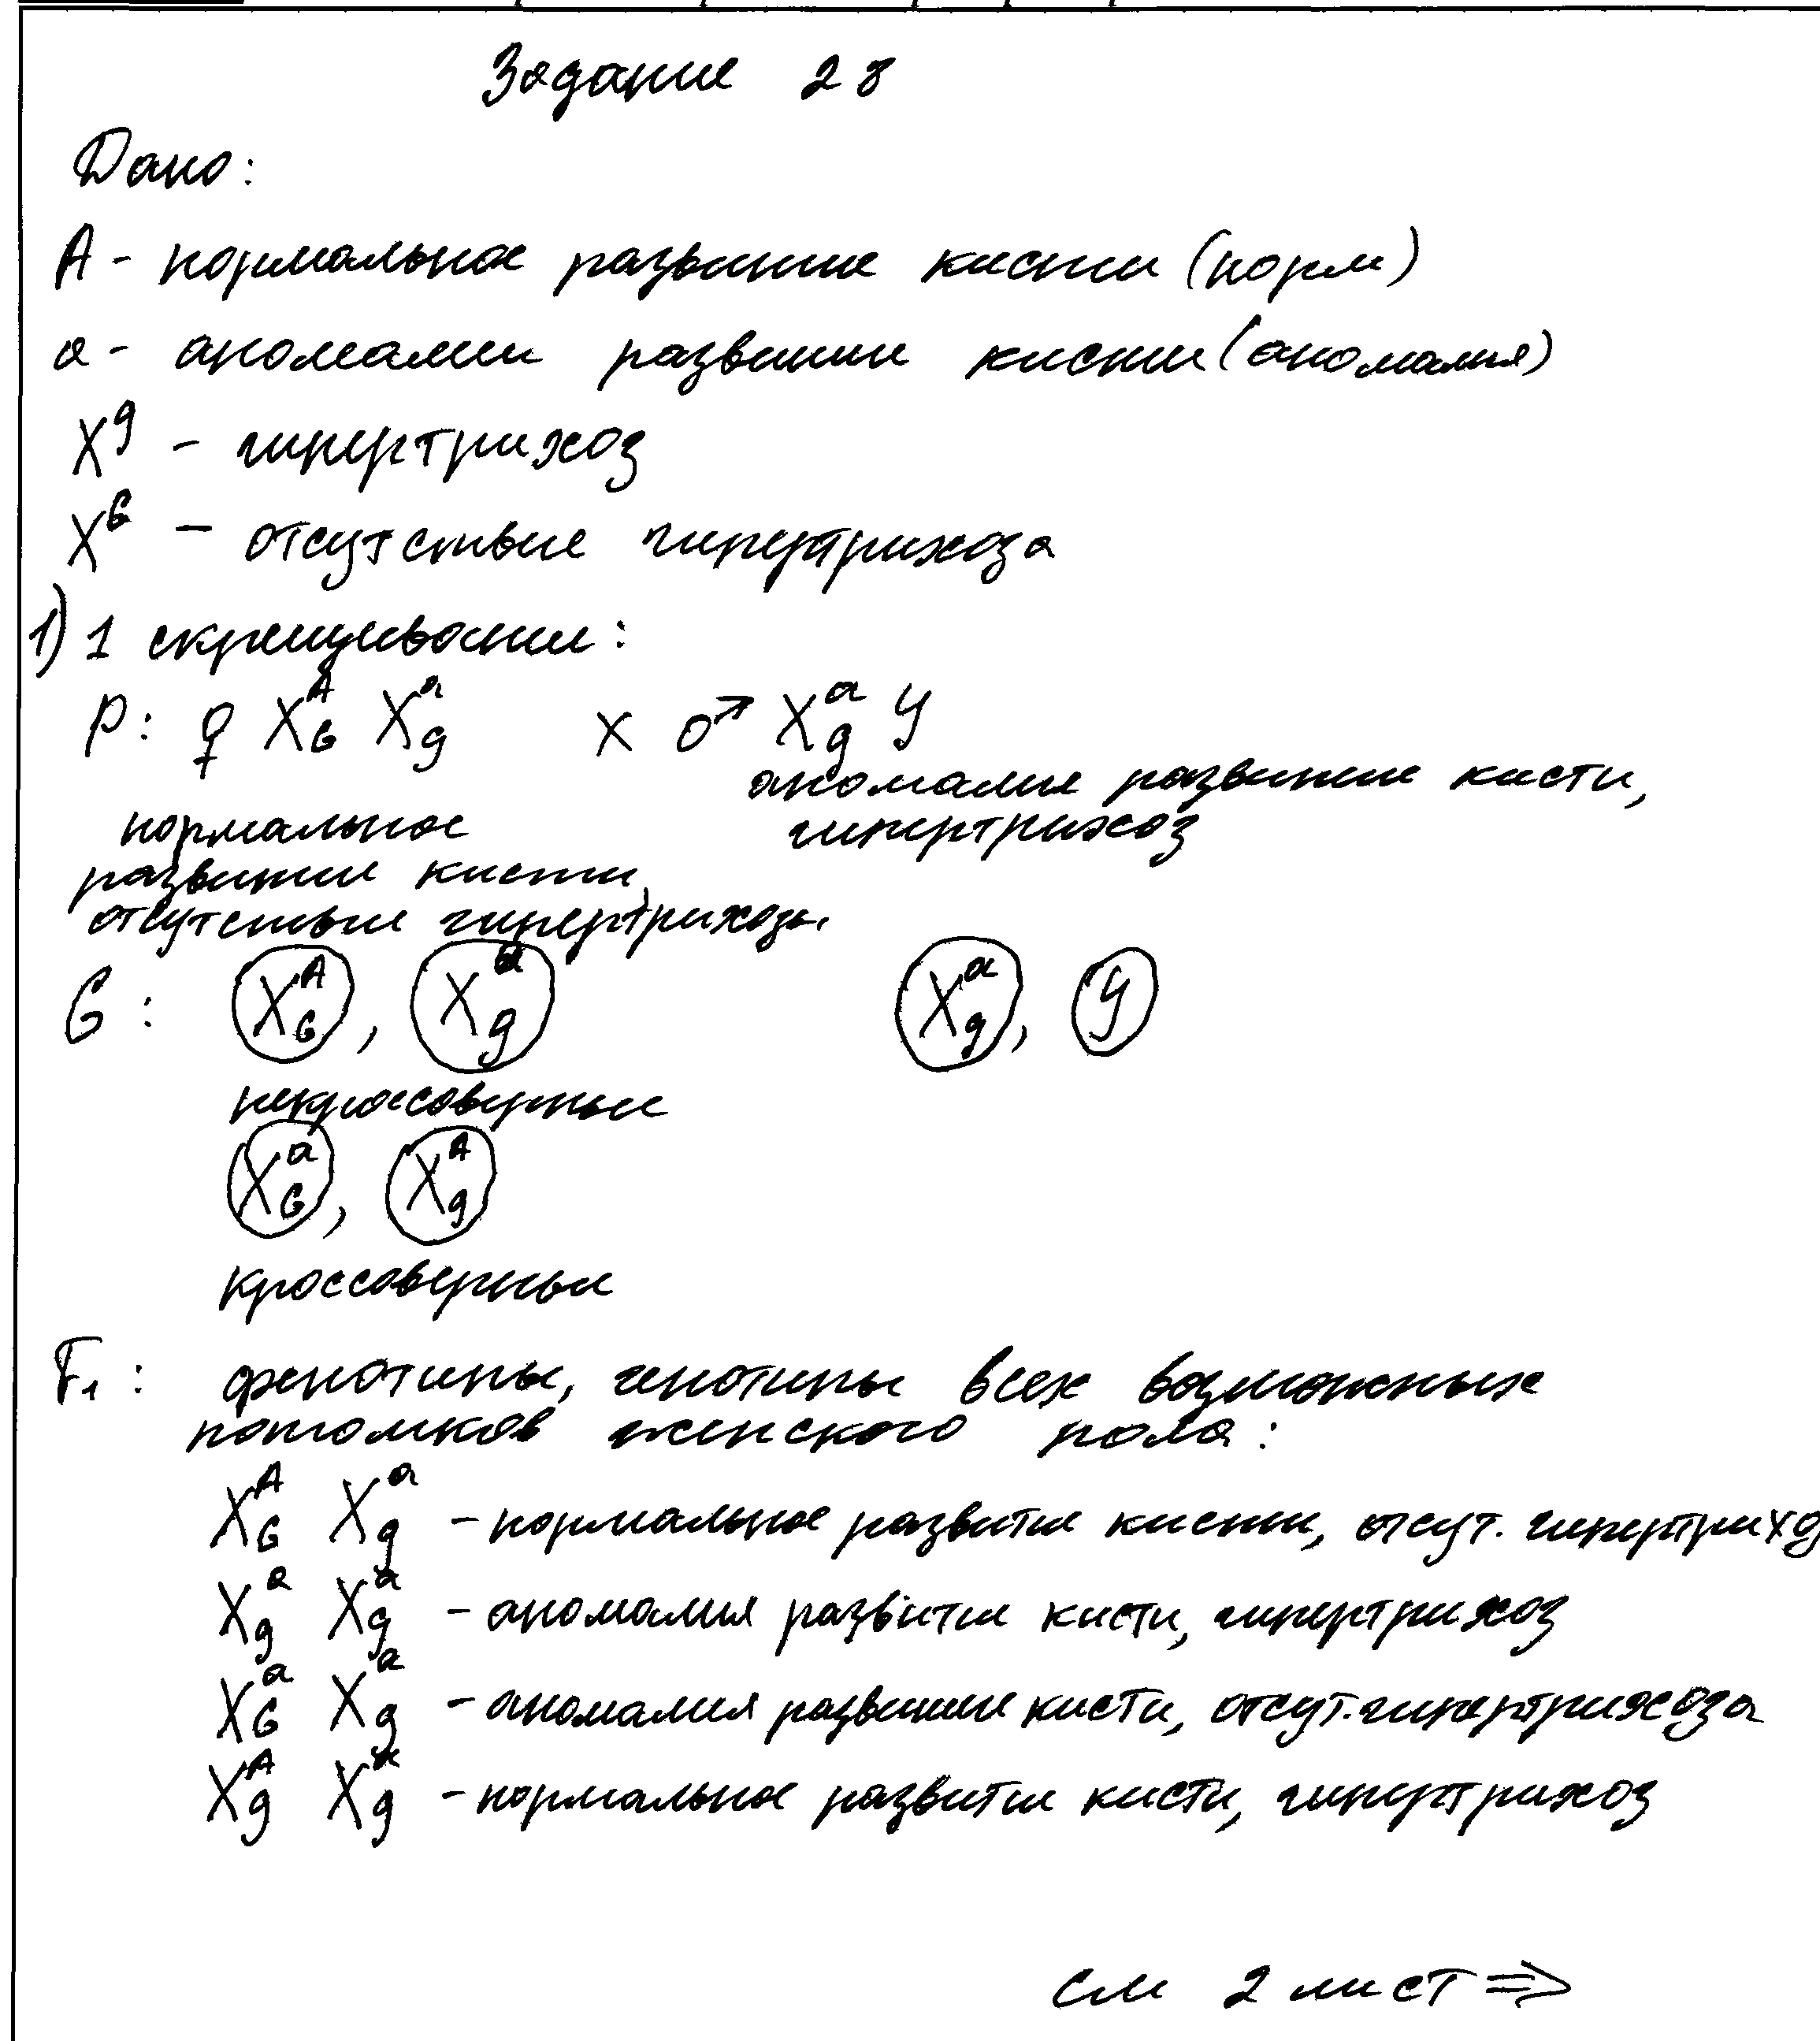 Задание 28
Дано:
А - нормальное развитие кисти (норм)
а - аномалии развитии кисти (аномалия)
X^g - гипертрихоз
X^G - отсутствие гипертрихоза
1) 1 скрещивание:
P: ♀ X^A_G X^a_g × ♂ X^a_g У
аномалия развитие кисти,
нормальное гипертрихоз
развитие кисти,
отсутствие гипертрихоза
G: X^A_G, X^a_g X^a_g, У
некроссоверные
X^a_G, X^A_g
кроссоверные
F₁: фенотипы, генотипы всех возможных
потомков женского пола:
X^A_G X^a_g - нормальное развитие кисти, отсут. гипертрихо
X^a_g X^a_g - аномалия развитие кисти, гипертрихоз
X^a_G X^a_g - аномалия развитие кисти, отсут. гипертрихоза
X^A_g X^a_g - нормальное развитие кисти, гипертрихоз
см 2 лист ⇒